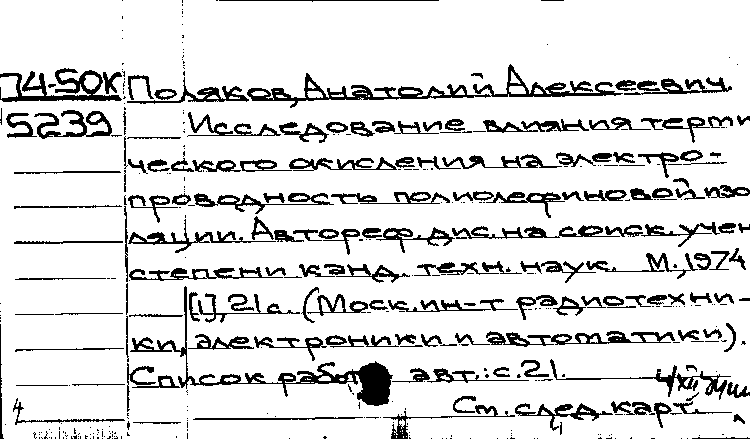 74-50К Поляков, Анатолий Алексеевич.
5239 Исследование влияния терми
ческого окисления на электро-
проводность полиолефиновой изо
ляции. Автореф. дис. на соиск. учен
степени канд. техн. наук. М., 1974
[1], 21 с. (Моск. ин-т радиотехни-
ки, электроники и автоматики).
Список работ авт.: с. 21.
4 См. след. карт.